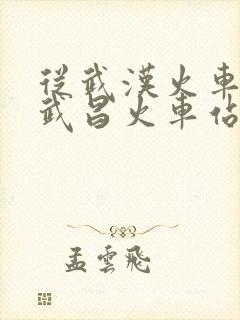 從武漢火車
武昌火車佔
孟雲飛